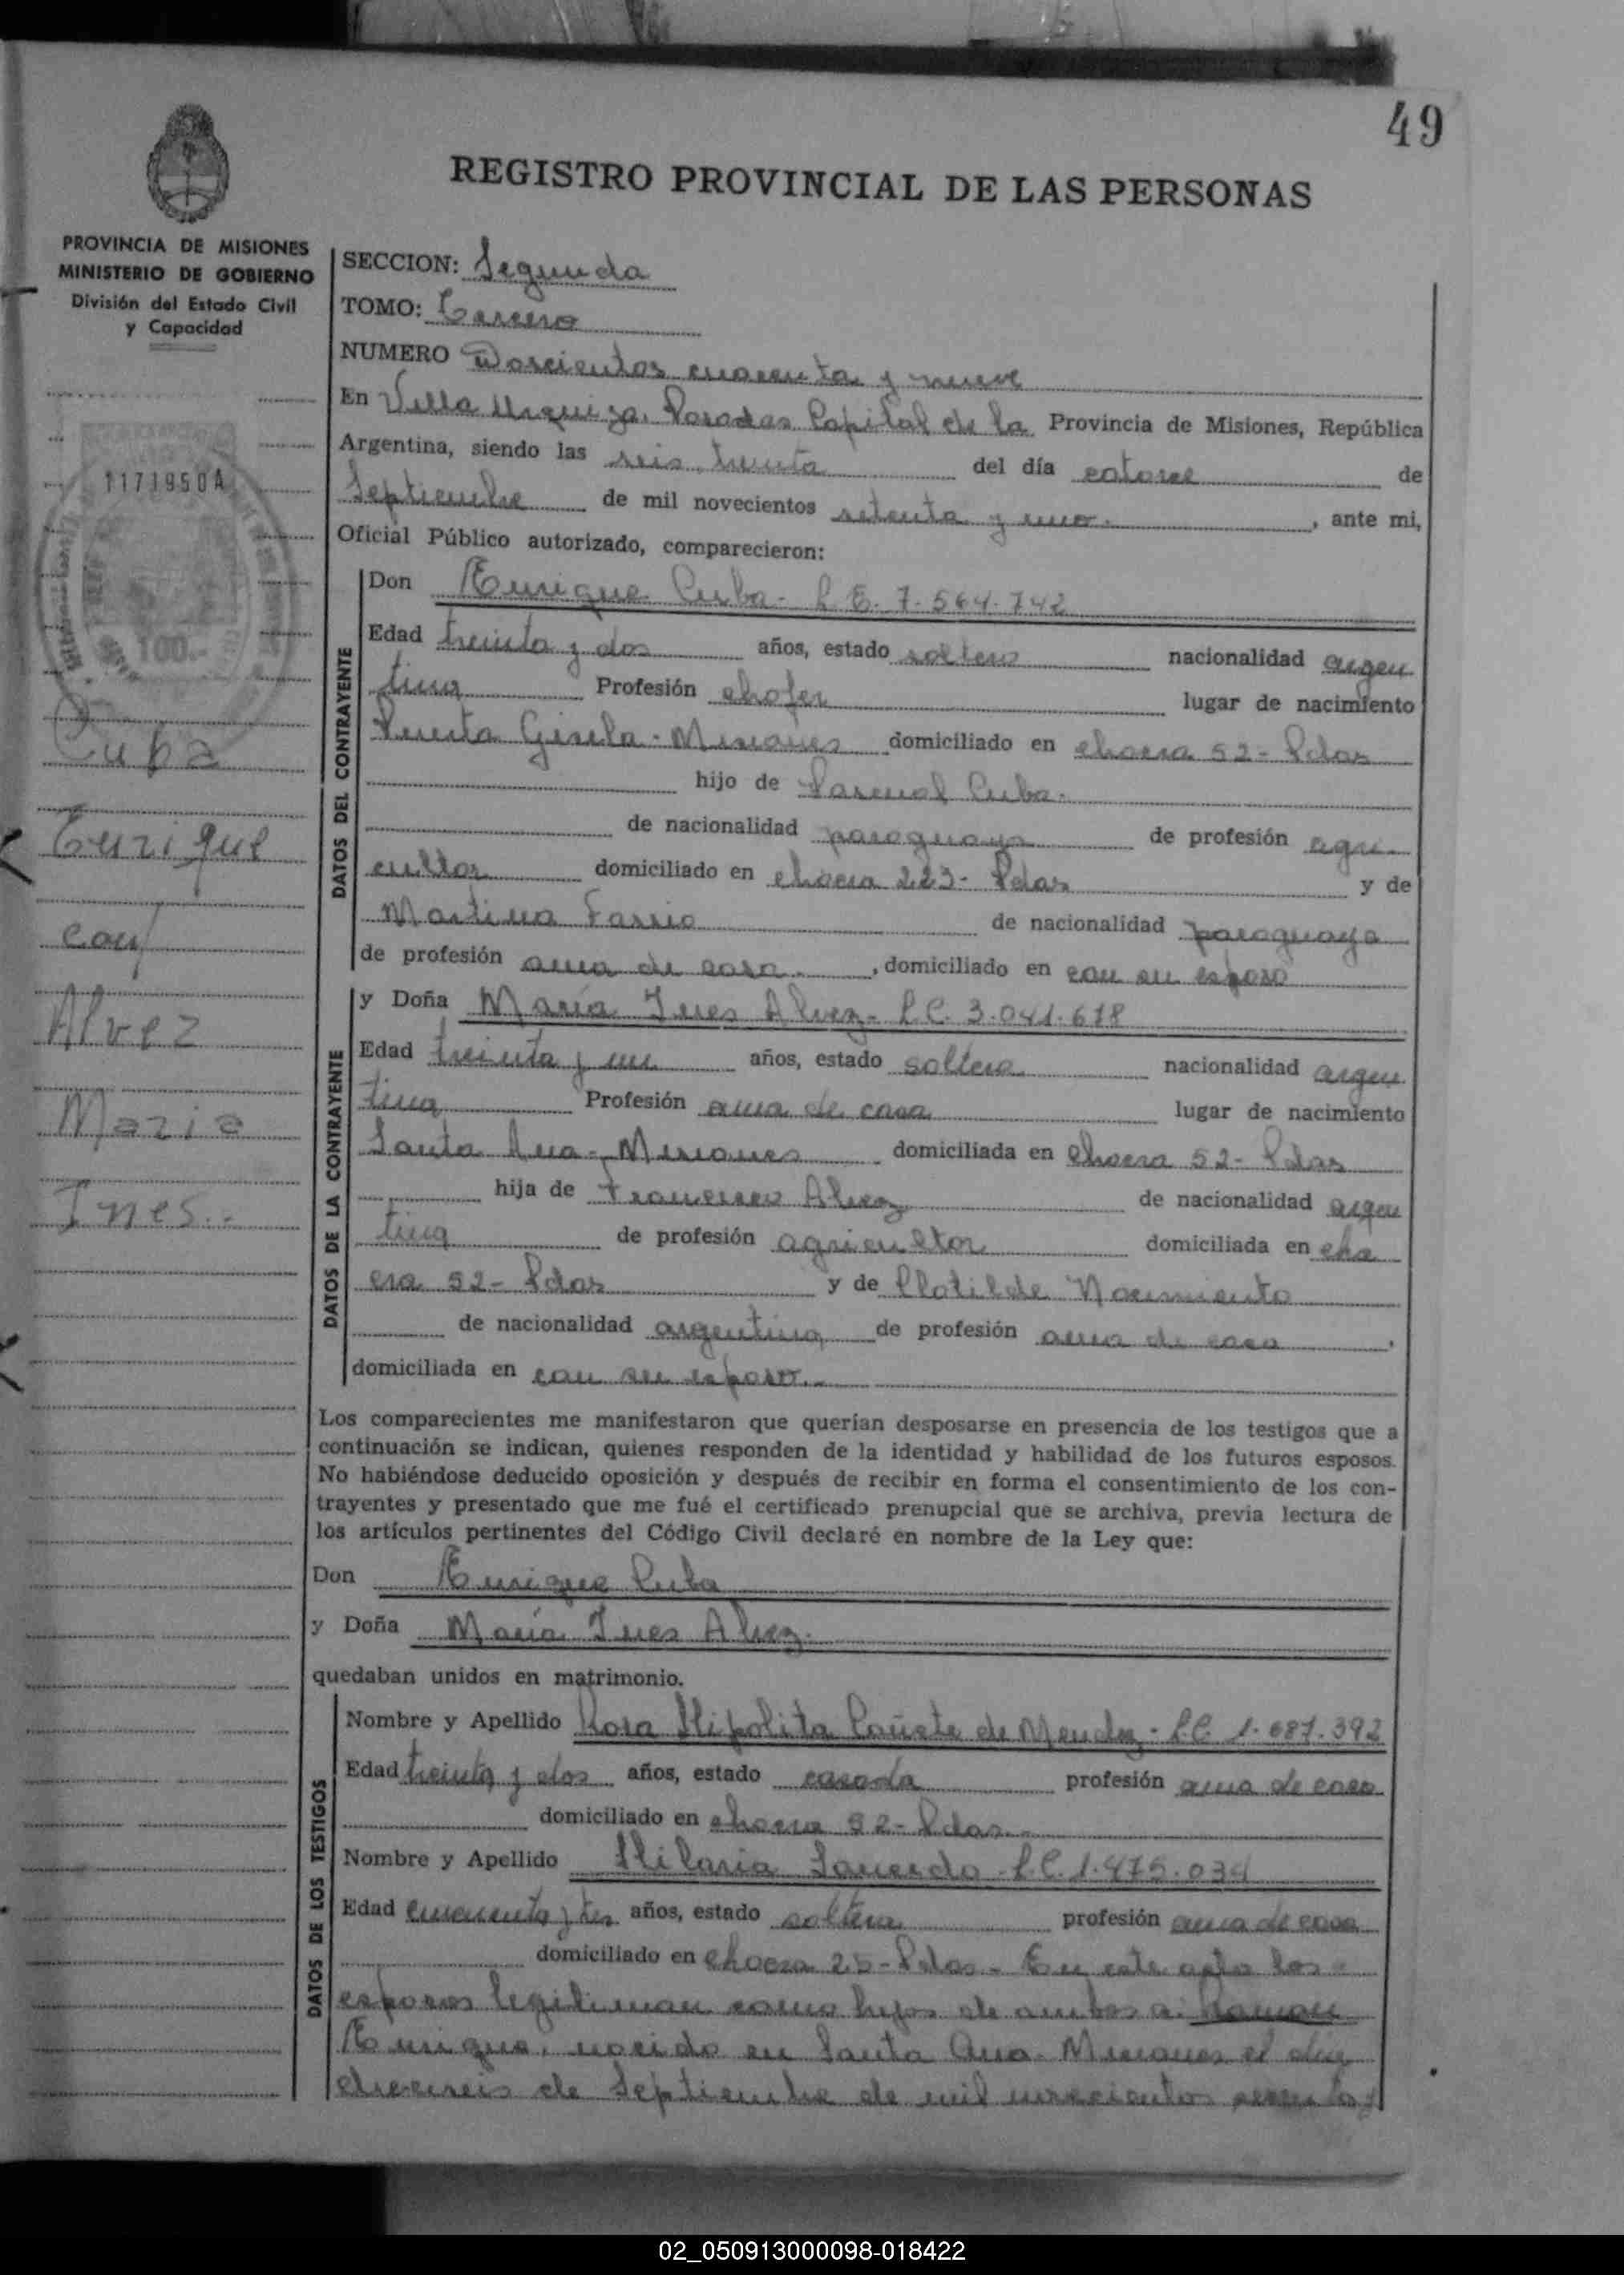 49
REGISTRO PROVINCIAL DE LAS PERSONAS
PROVINCIA DE MISIONES
MINISTERIO DE GOBIERNO
División del Estado Civil
y Capacidad
1171950A
100.-
Cuba
Enrique
con
Alvez
Maria
Ines.-
SECCION: Segunda
TOMO: Tercero
NUMERO Doscientos cuarenta y nueve
En Villa Urquiza Posadas Capital de la Provincia de Misiones, República
Argentina, siendo las seis treinta del día catorce de
Septiembre de mil novecientos setenta y uno. , ante mi,
Oficial Público autorizado, comparecieron:
DATOS DEL CONTRAYENTE
Don Enrique Cuba- L E. 7.564.742
Edad treinta y dos años, estado soltero nacionalidad argen
tina Profesión chofer lugar de nacimiento
Puerta Gisela-Misiones domiciliado en chacra 52- Pdas
hijo de Pascual Cuba.
de nacionalidad paraguaya de profesión agri-
cultor domiciliado en chacra 223- Pdas y de
Martina Farrio de nacionalidad paraguaya
de profesión ama de casa. , domiciliado en con su esposo
DATOS DE LA CONTRAYENTE
y Doña María Ines Alvez- L.C. 3.041.618
Edad treinta y un años, estado soltera nacionalidad argen
tina Profesión ama de casa lugar de nacimiento
Santa Ana-Misiones domiciliada en chacra 52- Pdas
hija de Francisco Alvez de nacionalidad argen
tina de profesión agricultor domiciliada en cha
cra 52- Pdas y de Clotilde Nacimiento
de nacionalidad argentina de profesión ama de casa ,
domiciliada en con su esposo.-
Los comparecientes me manifestaron que querían desposarse en presencia de los testigos que a
continuación se indican, quienes responden de la identidad y habilidad de los futuros esposos.
No habiéndose deducido oposición y después de recibir en forma el consentimiento de los con-
trayentes y presentado que me fué el certificado prenupcial que se archiva, previa lectura de
los artículos pertinentes del Código Civil declaré en nombre de la Ley que:
Don Enrique Cuba
y Doña María Ines Alvez.
quedaban unidos en matrimonio.
DATOS DE LOS TESTIGOS
Nombre y Apellido Rosa Hipolita Cañete de Mendez- L.C. 1.687.392
Edad treinta y dos años, estado casada profesión ama de casa
domiciliado en chacra 52- Pdas.-
Nombre y Apellido Hilaria L.C. 1.475.034
Edad cincuenta y tres años, estado soltera profesión ama de casa
domiciliado en chacra 25- Pdas- En este acto los
esposos legitiman como hijos de ambos a: Ramon
Enrique, nacido en Santa Ana-Misiones el día
dieciseis de Septiembre de mil novecientos sesenta y
02_050913000098-018422